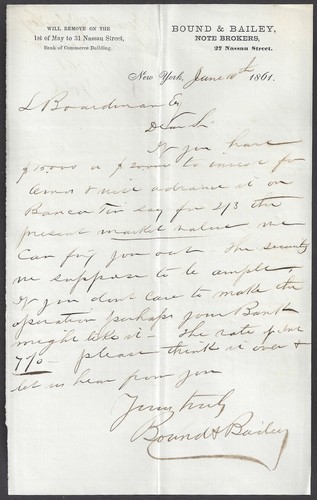 WILL REMOVE ON THE
1st of May to 31 Nassau Street,
Bank of Commerce Building.
BOUND & BAILEY,
NOTE BROKERS,
27 Nassau Street.
New York, June 10th 1861.
L Boardman Esq
Dear Sir
If you have
$15,000 or $ to invest for
& will advance it on
Banca Tin say for 2/3 the
present market value we
can fix you out. The security
we suppose to be ample,
If you dont care to make the
operation perhaps your Bank
might take it - The rate
7% - please think it over &
let us hear from you
Yours truly
Bound & Bailey